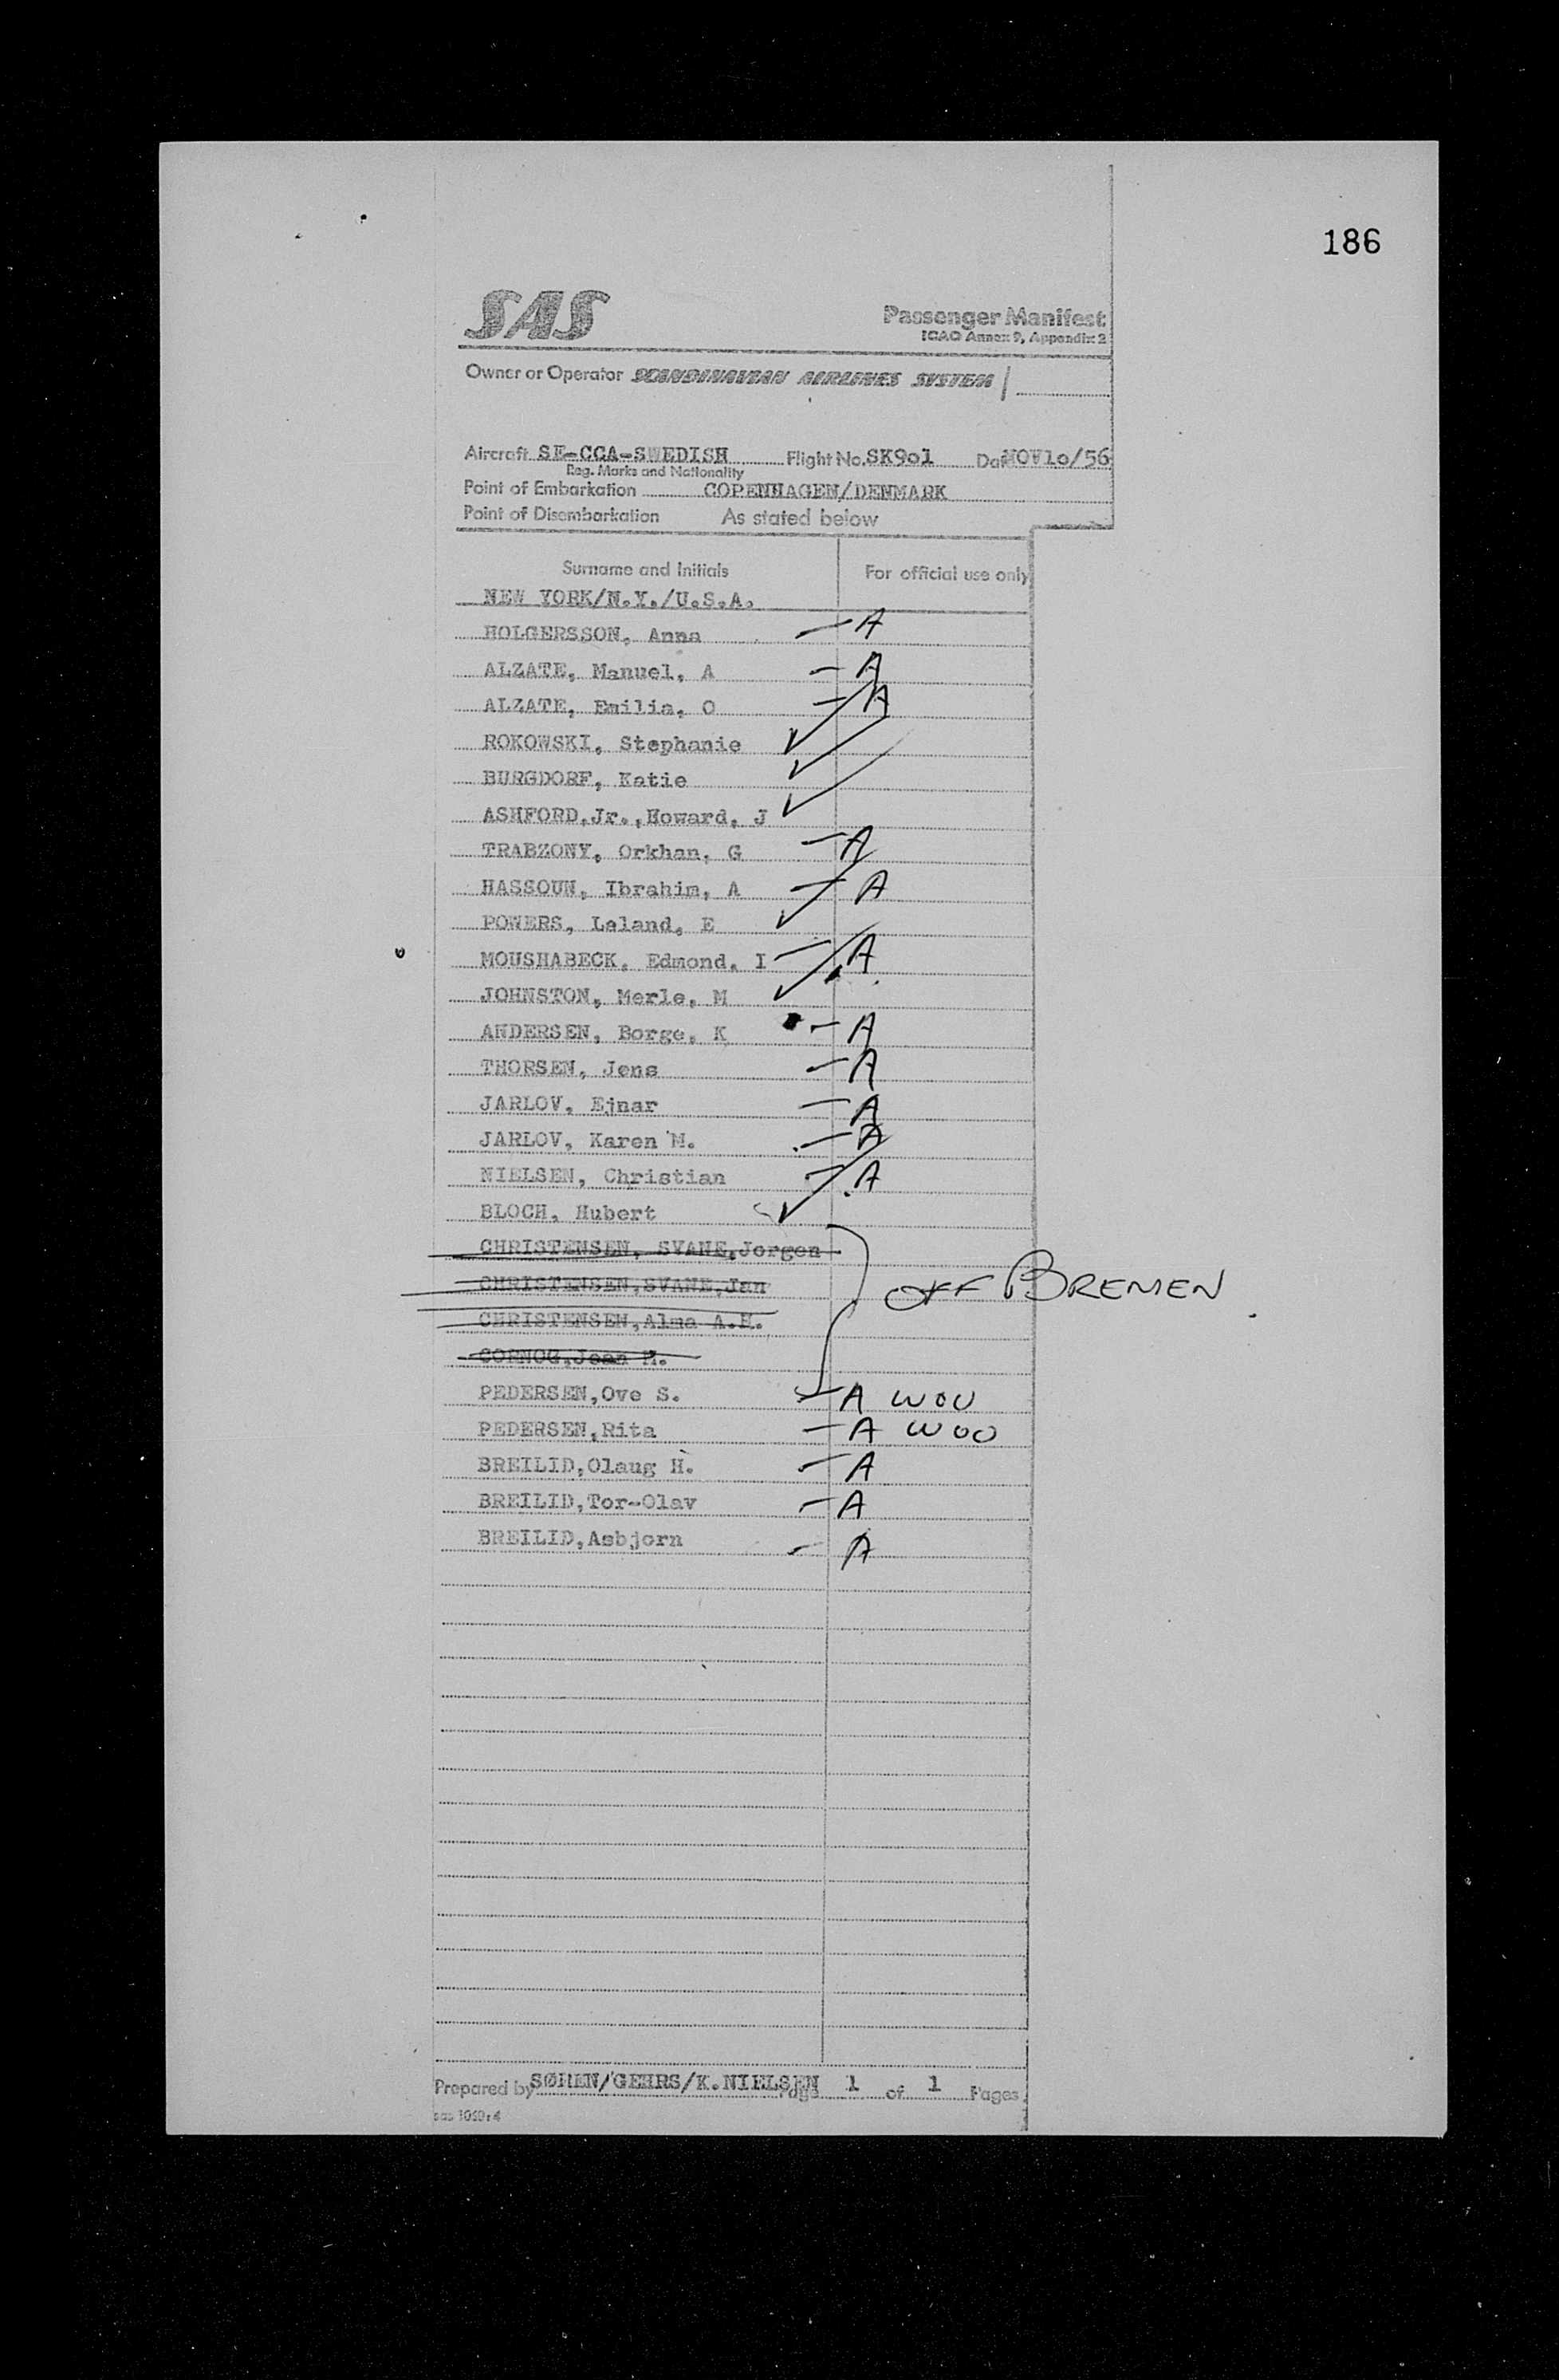 186
SAS
Passenger Manifest
ICAO Annex 9, Appendix 2
Owner or Operator SCANDINAVIAN AIRLINES SYSTEM
Aircraft SE-CCA-SWEDISH Flight No. SK901 Da NOV10/56
Reg. Marks and Nationality
Point of Embarkation COPENHAGEN/DENMARK
Point of Disembarkation As stated below
Surname and Initials For official use only
NEW YORK/N.Y./U.S.A.
HOLGERSSON, Anna — A
ALZATE, Manuel, A — A
ALZATE, Emilia, O — A
ROKOWSKI, Stephanie ✓
BURGDORF, Katie ✓
ASHFORD,Jr.,Howard, J ✓
TRABZONY, Orkhan, G — A
HASSOUN, Ibrahim, A — A
POWERS, Leland, E ✓
MOUSHABECK, Edmond, I — A
JOHNSTON, Merle, M ✓
ANDERSEN, Borge, K — A
THORSEN, Jens — A
JARLOV, Ejnar — A
JARLOV, Karen M. — A
NIELSEN, Christian — A
BLOCH, Hubert ✓
CHRISTENSEN, SVANE,Jorgen
CHRISTENSEN,SVANE,Jan OFF BREMEN
CHRISTENSEN,Alma A.H.
CORNOG,Jean M.
PEDERSEN,Ove S. — A WOU
PEDERSEN,Rita — A WOO
BREILID,Olaug H. — A
BREILID,Tor-Olav — A
BREILID,Asbjorn — A
Prepared by SØREN/GEHRS/K.NIELSEN Page 1 of 1 Pages
sas 1020:4